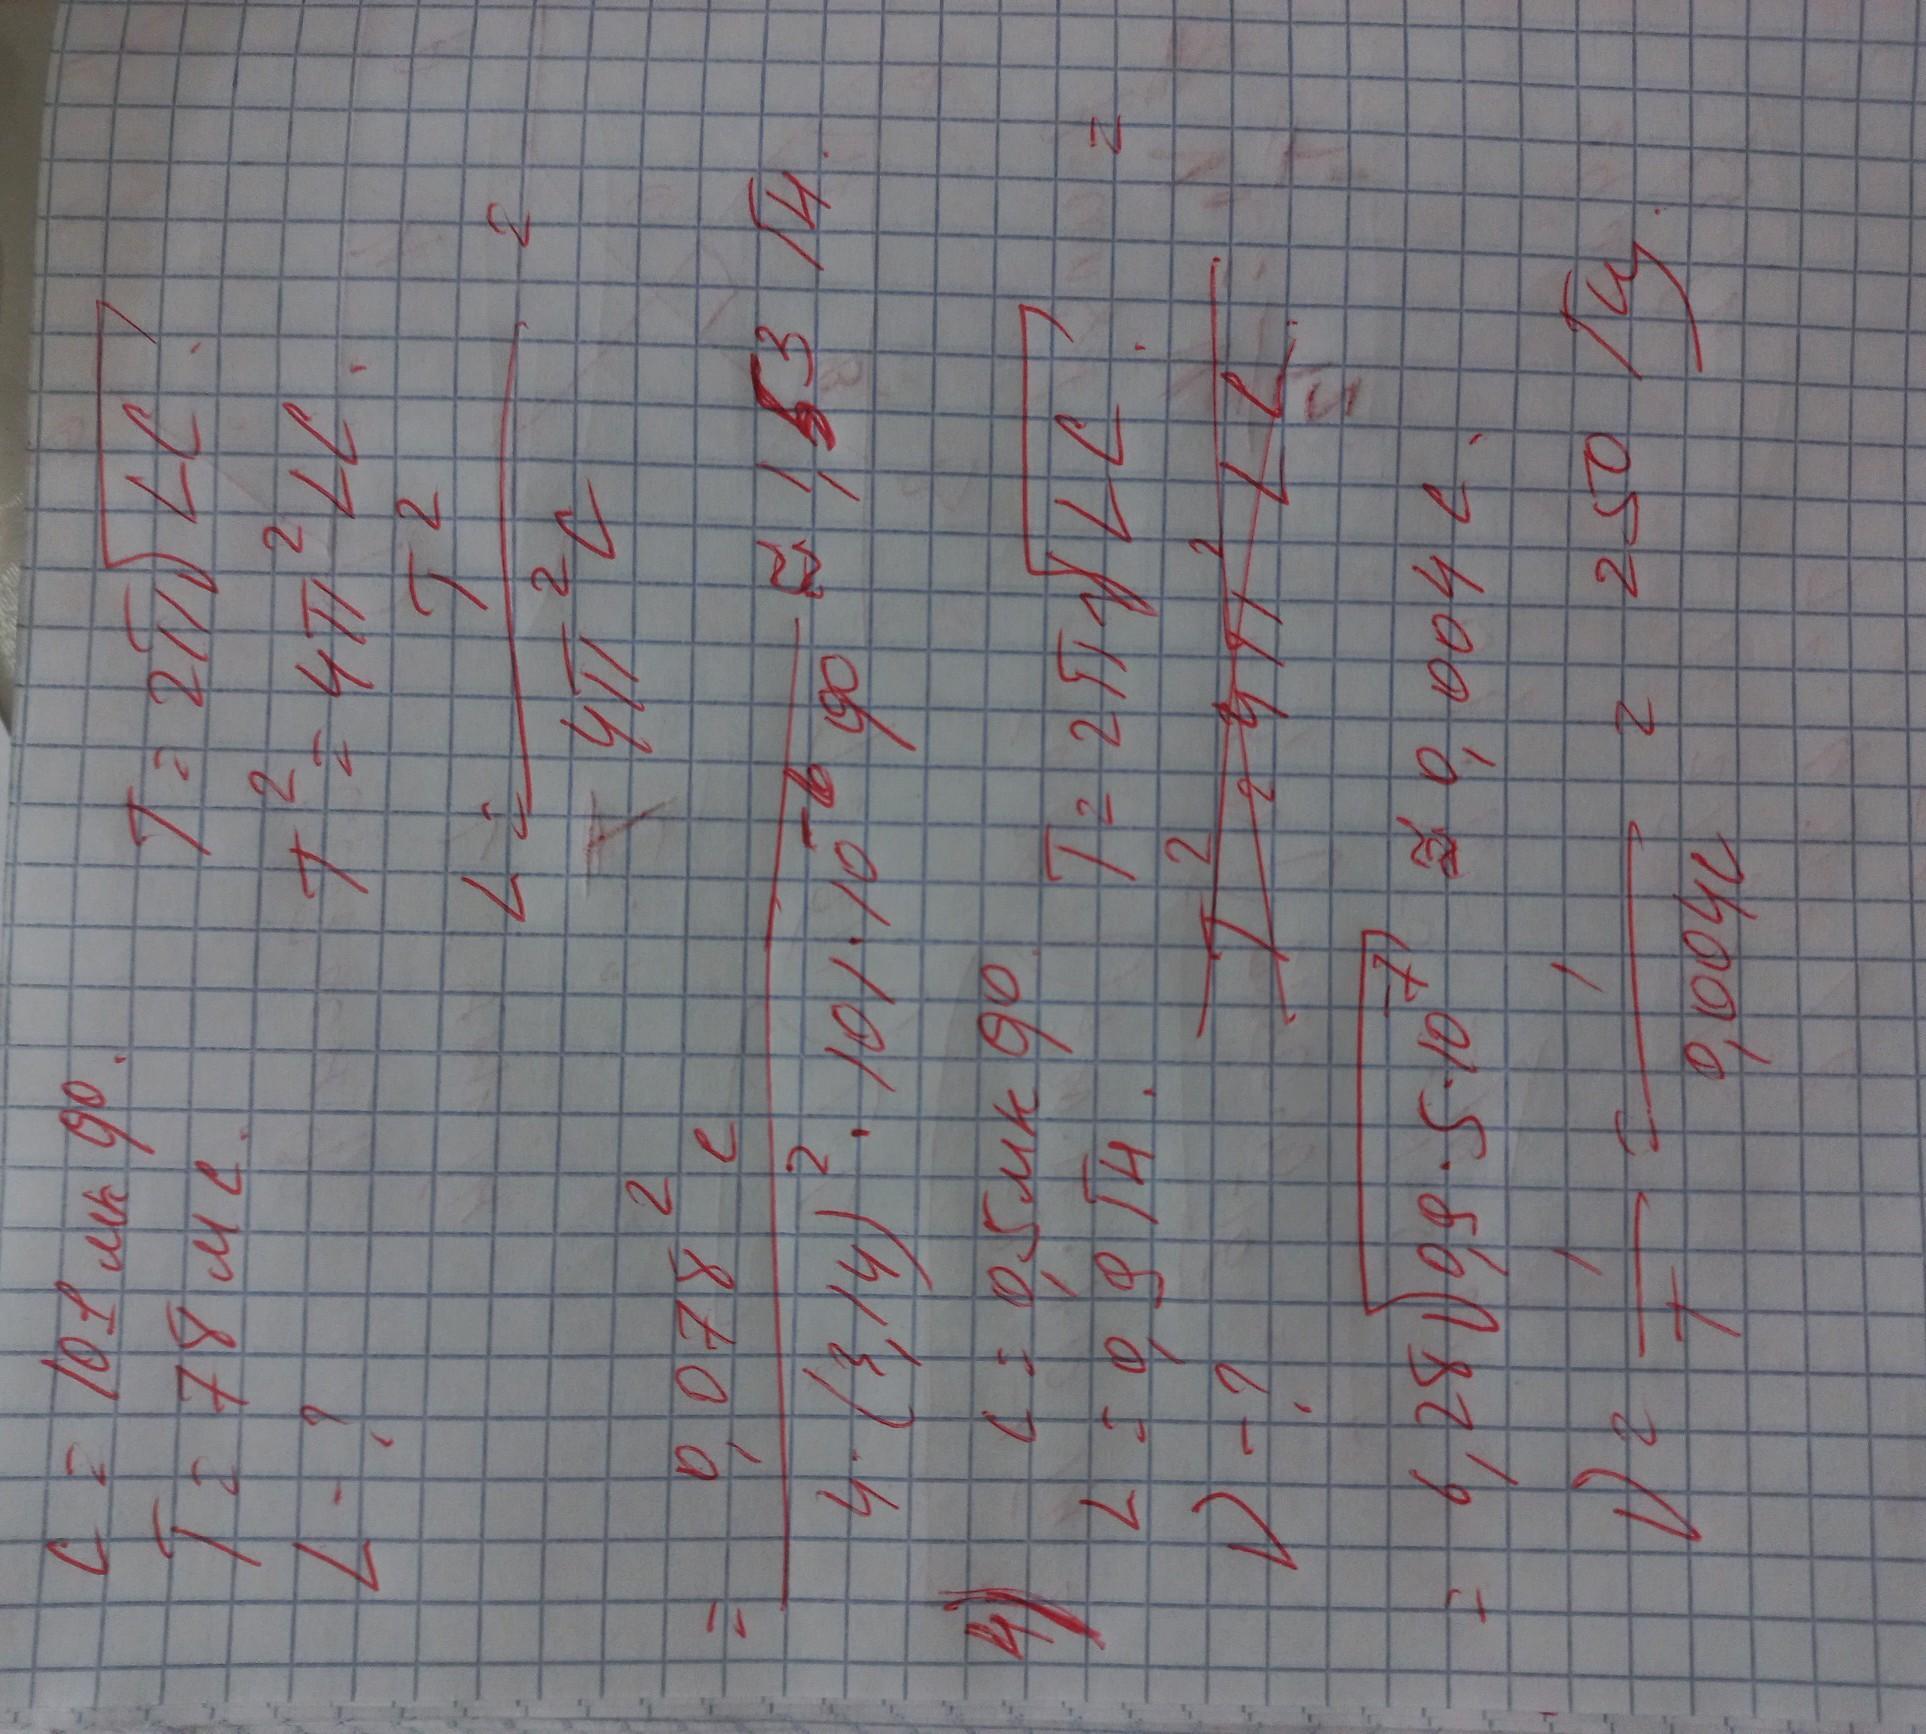 C = 101 мк ф.
T = 78 мс.
L - ?
T = 2π√LC.
T² = 4π² LC.
L = T² / 4π² C =
= 0,078² с / 4·(3,14)²·101·10⁻⁶ ф ≈ 1,53 Гн.
4) C = 0,5 мк ф
L = 0,9 Гн.
ν - ?
T = 2π√LC. =
= 6,28√0,9·5·10⁻⁷ ≈ 0,004 с.
ν = 1/T = 1/0,004с = 250 Гц.